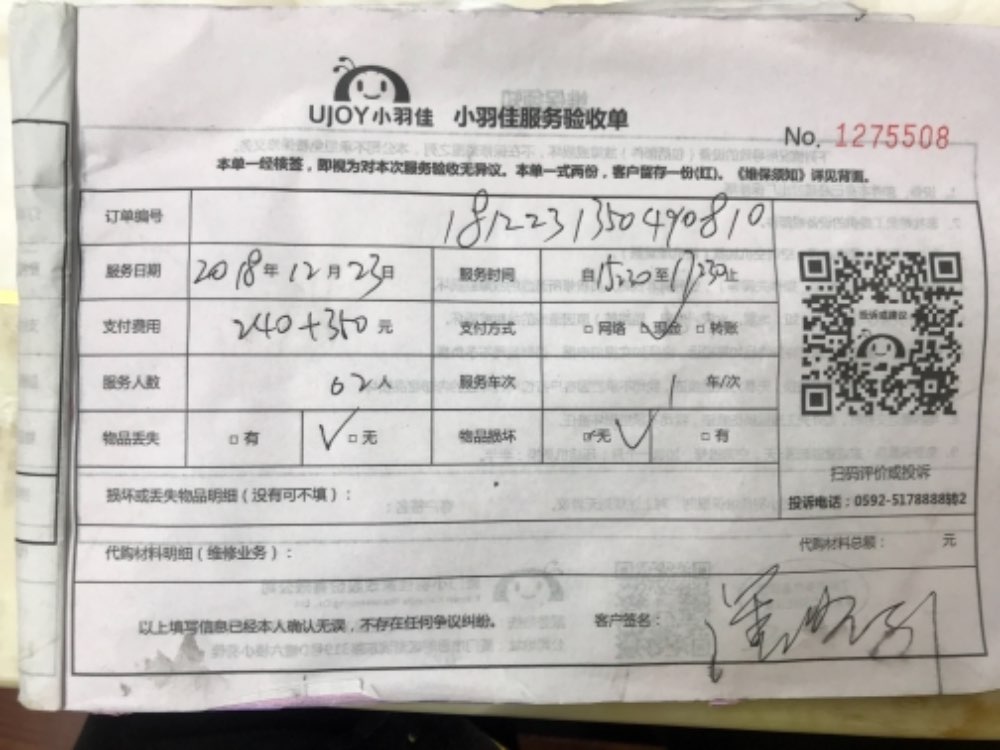 UJOY小羽佳 小羽佳服务验收单
No. 1275508
本单一经核签，即视为对本次服务验收无异议。本单一式两份，客户留存一份(红)。《维保须知》详见背面。
订单编号 1812231350490810
服务日期 2018年12月23日 服务时间 自15:20至17:30止
支付费用 240+350元 支付方式 □网络 □现金 □转账
服务人数 02人 服务车次 1 车/次
物品丢失 □有 ✓□无 物品损坏 □无✓ □有
投诉或建议
扫码评价或投诉
损坏或丢失物品明细（没有可不填）：
投诉电话：0592-5178888转2
代购材料明细（维修业务）： 代购材料总额： 元
以上填写信息已经本人确认无误，不存在任何争议纠纷。 客户签名：